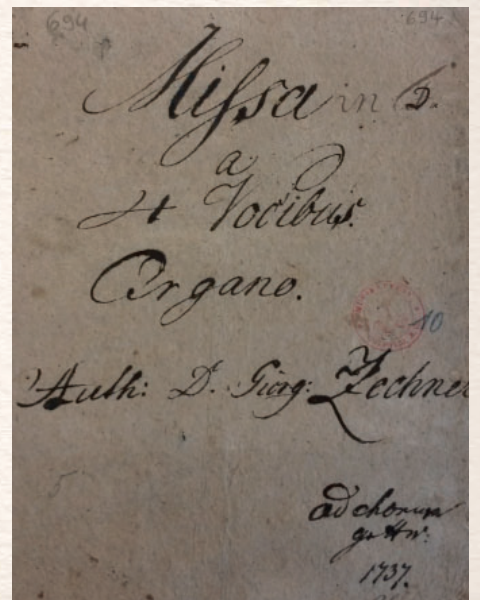 694 694
Missa in D.
a
4 Vocibus.
Organo.
10
Auth: D. Giorg: Zechner
ad chorum
gottw:
1737.